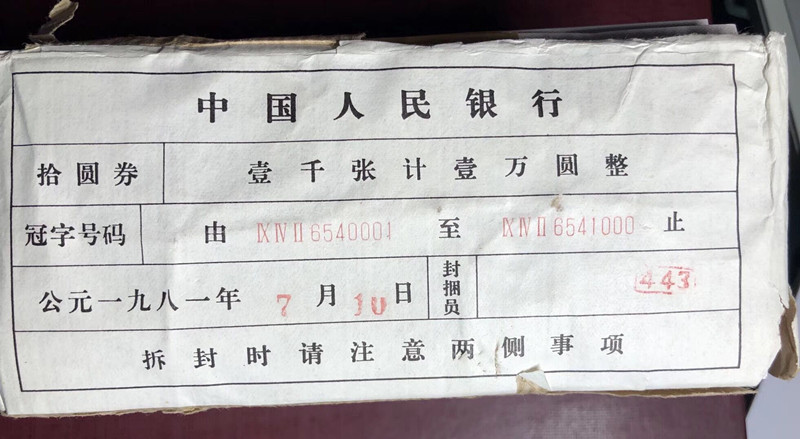 中国人民银行
拾圆券 壹千张计壹万圆整
冠字号码 由 IXIVII6540001 至 IXIVII6541000 止
公元一九八一年 7 月 10 日 封捆员 443
拆封时请注意两侧事项